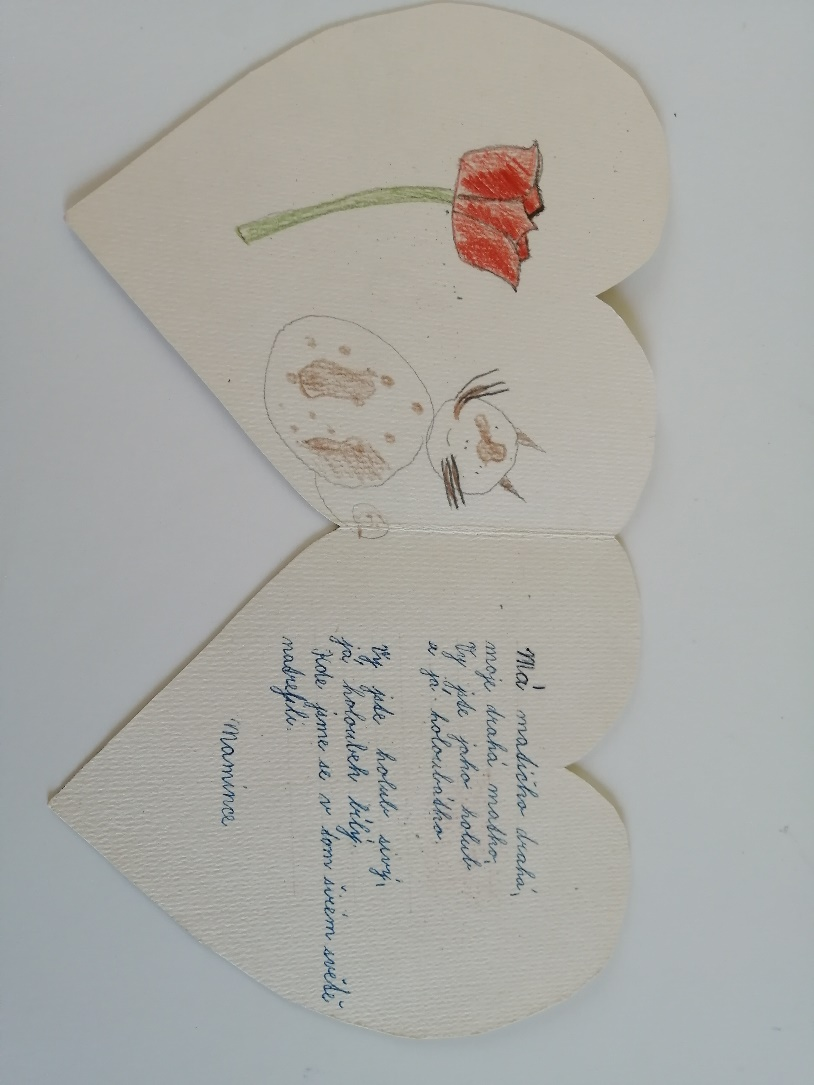 Má matičko drahá,
moje drahá matko,
Vy jste jako holub
a já holoubátko.
Vy jste holub sivý,
já holoubek bílý,
kde jsme se v tom širém světě
natrefili.
Mamince